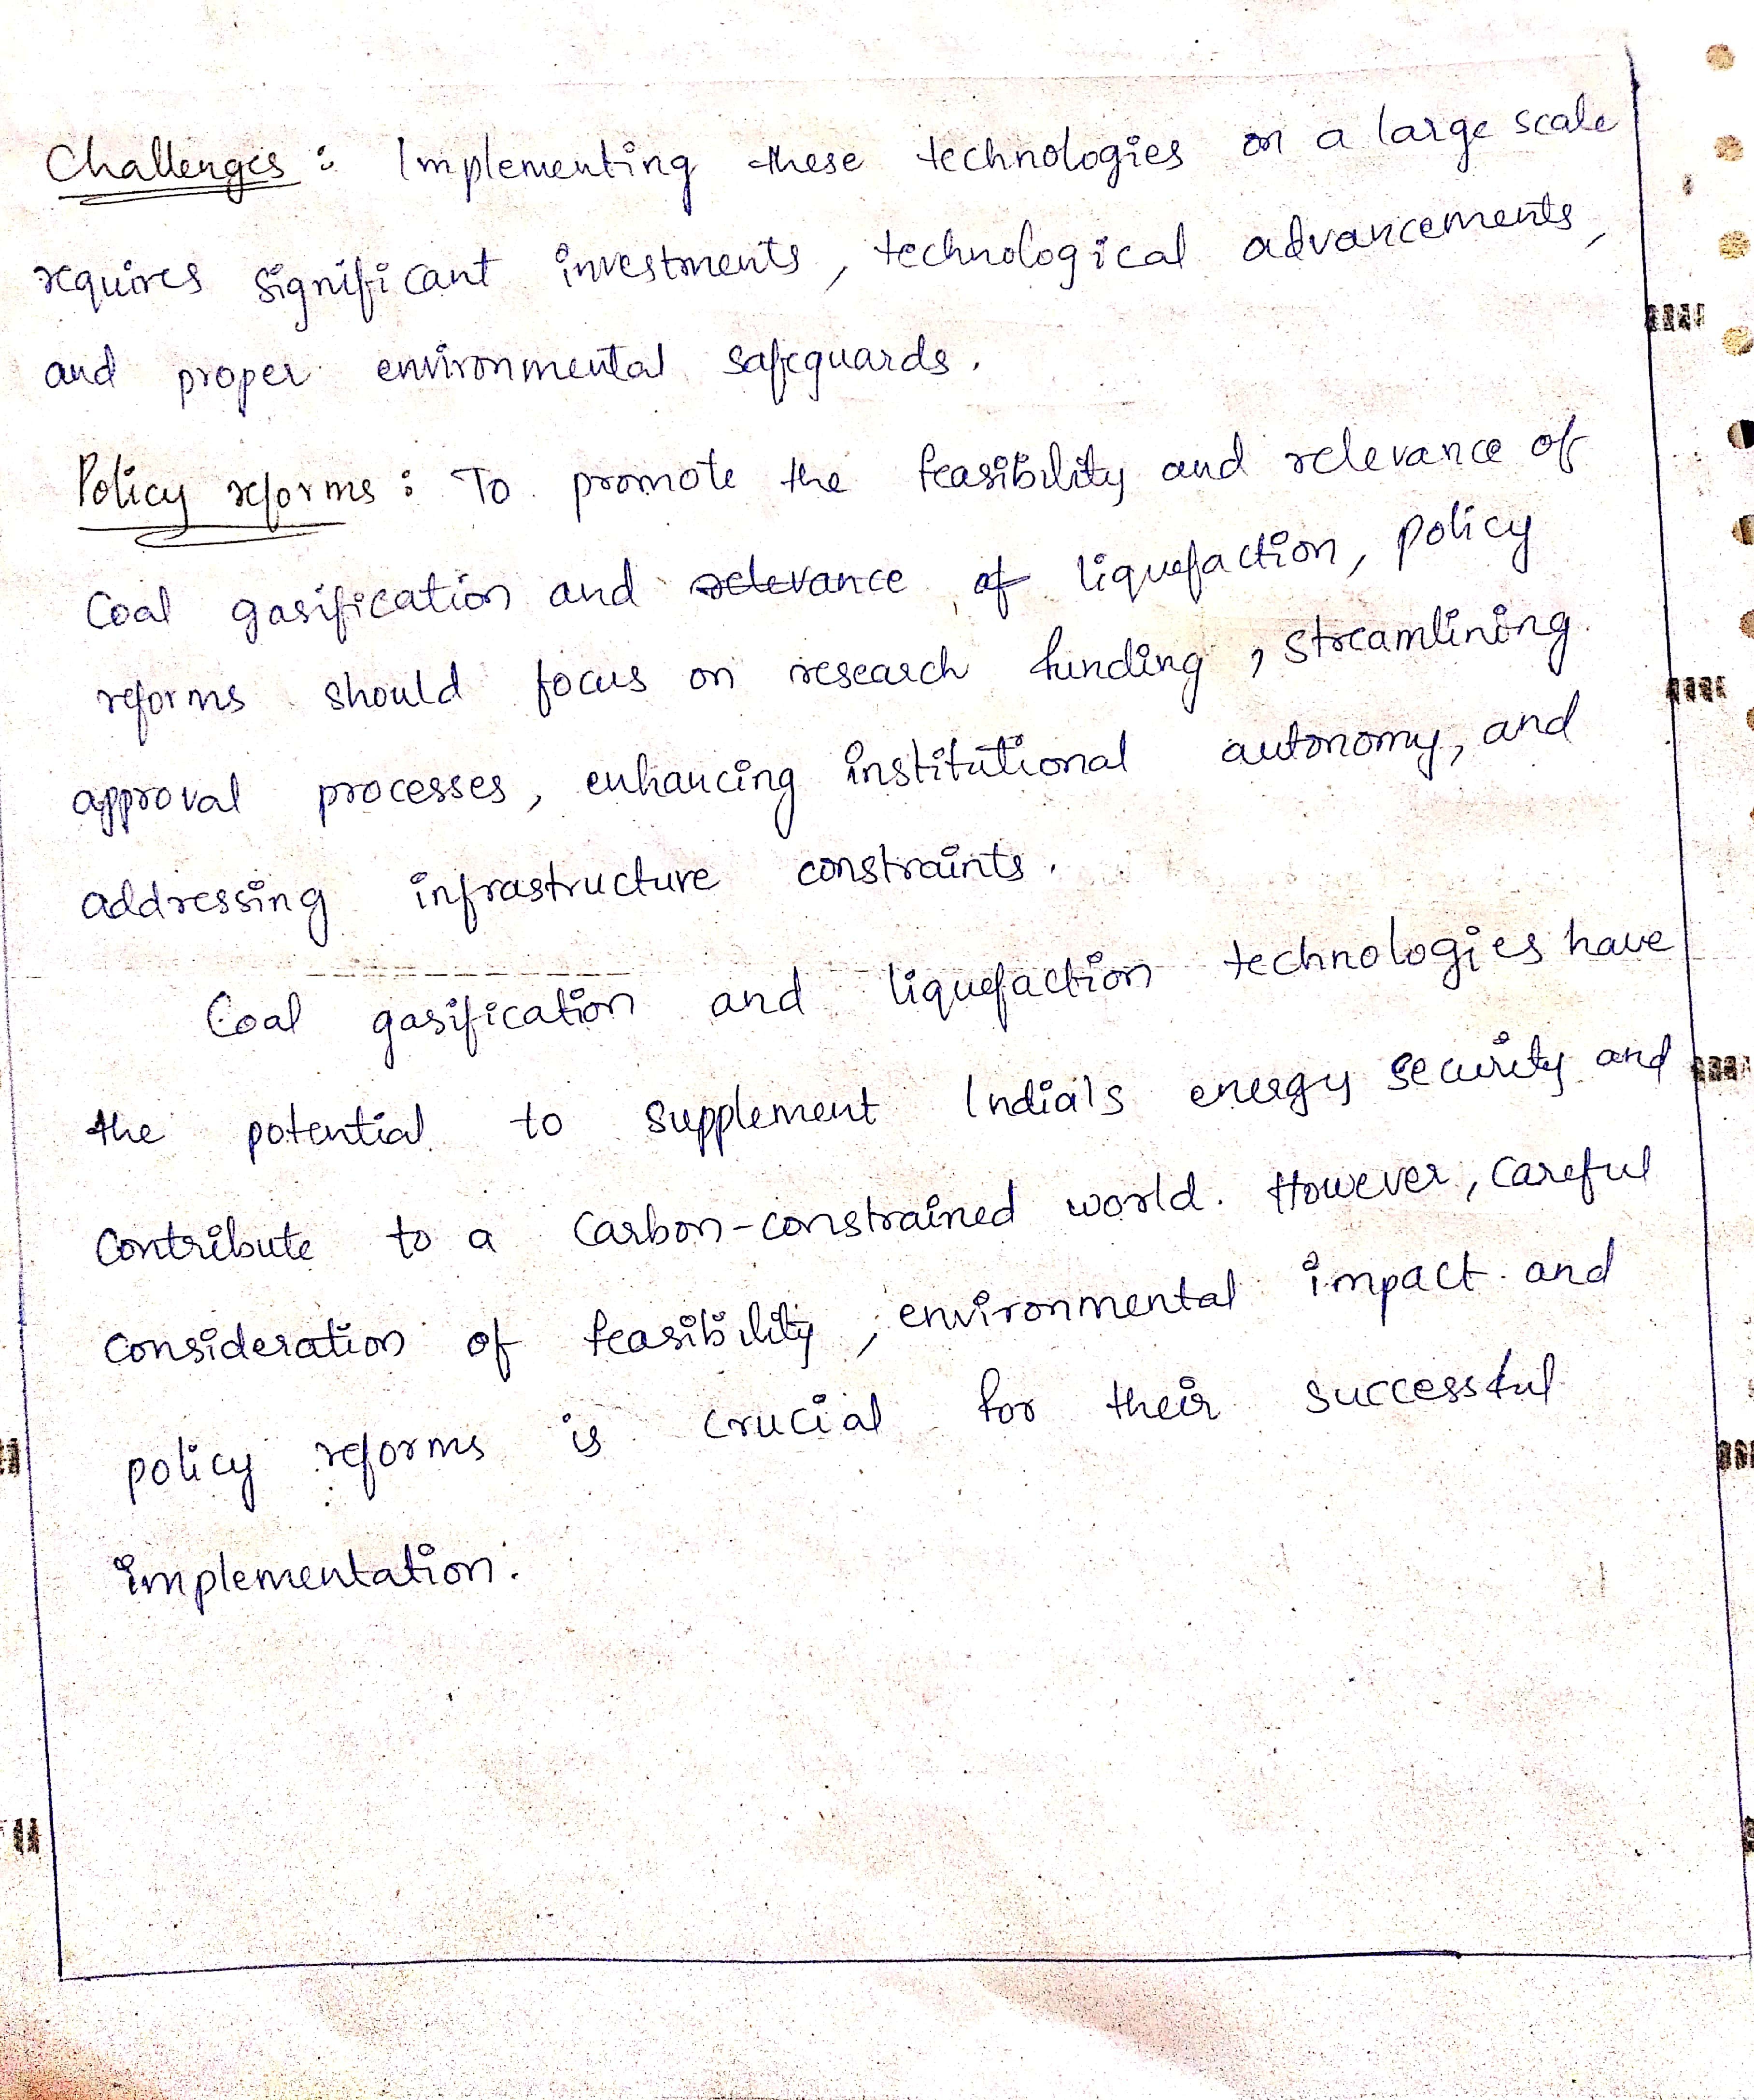 Challenges : Implementing these technologies on a large scale
requires significant investments, technological advancements,
and proper environmental safeguards.
Policy reforms : To promote the feasibility and relevance of
Coal gasification and relevance of liquefaction, policy
reforms should focus on research funding, streamlining
approval processes, enhancing institutional autonomy, and
addressing infrastructure constraints.
Coal gasification and liquefaction technologies have
the potential to supplement India's energy security and
contribute to a carbon-constrained world. However, careful
consideration of feasibility, environmental impact and
policy reforms is crucial for their successful
implementation.